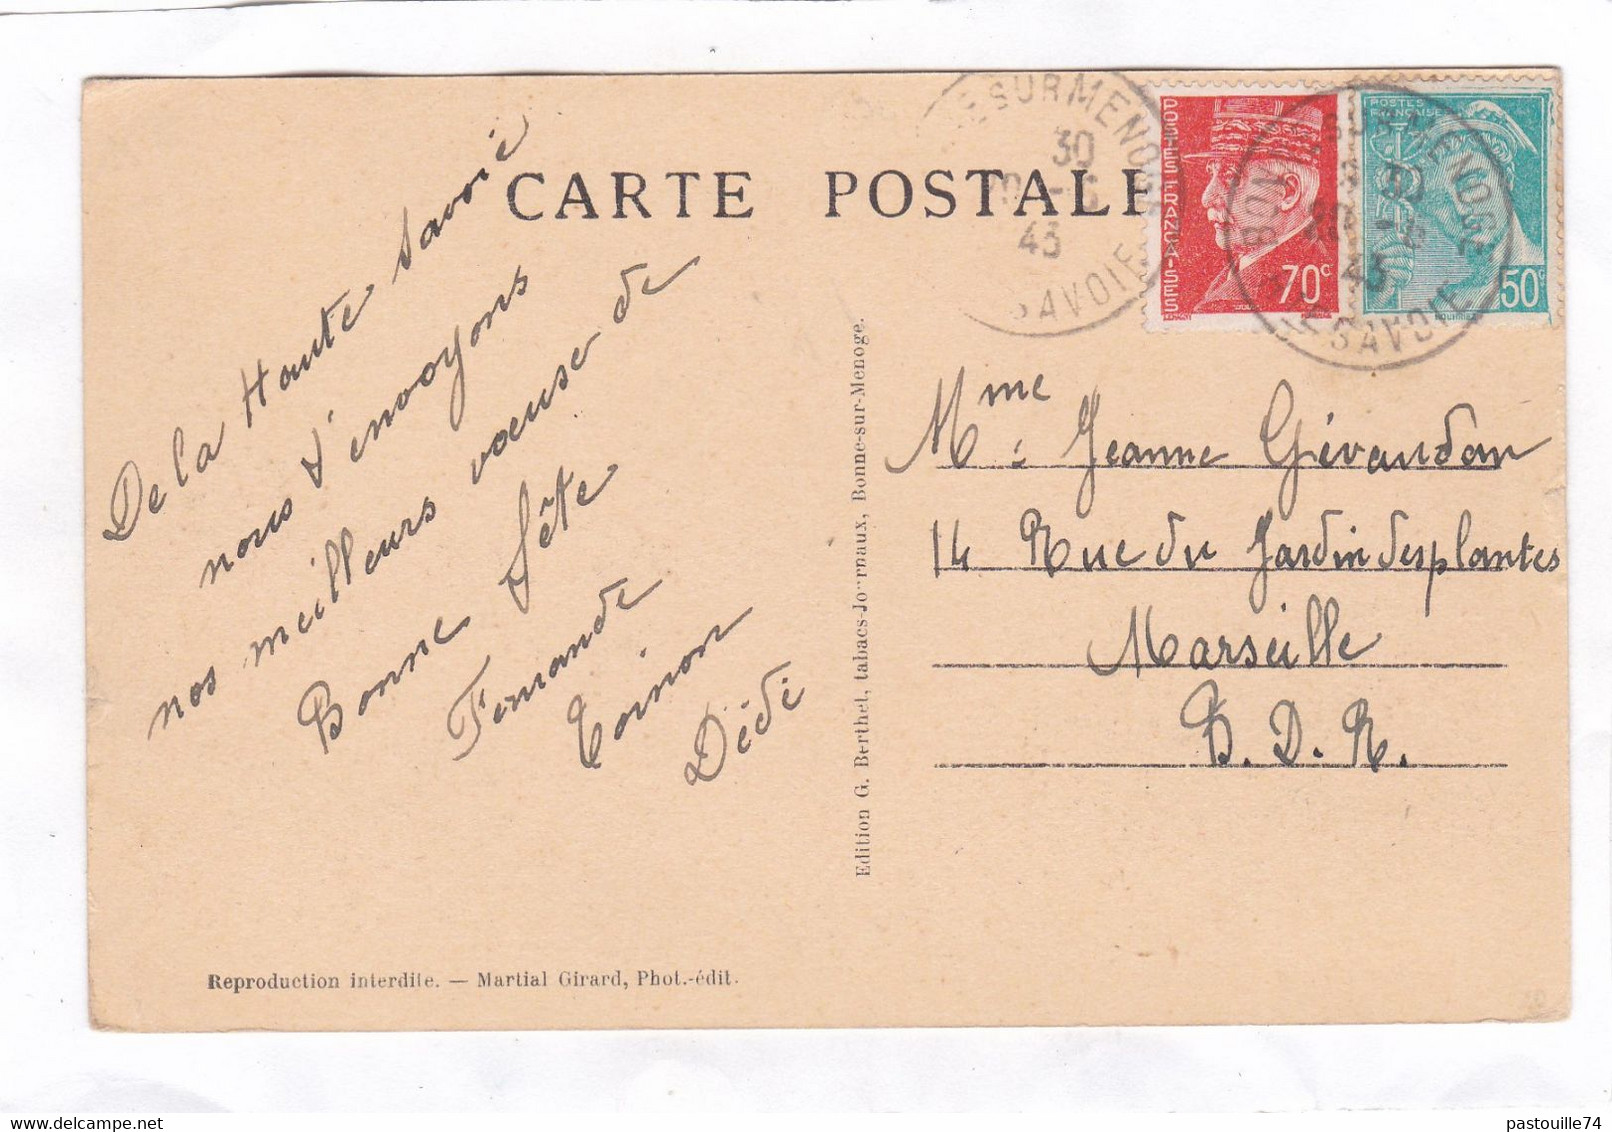 CARTE POSTALE
De la Haute Savoie
nous t'envoyons
nos meilleurs voeuse de
Bonne fête
Fernande
Toinon
Dédé
Reproduction interdite. — Martial Girard, Phot.-édit.
Edition G. Berthet, tabacs-Journaux, Bonne-sur-Menoge.
SUR MENOGE
30
-6
43
SAVOIE
POSTES FRANÇAISES
70c
POSTES
FRANÇAISES
50c
BONNE SUR MENOGE
30
-6
43
HTE SAVOIE
Mme : Jeanne Gévaudan
14 Rue du Jardin des plantes
Marseille
B. D. R.
pastouille74